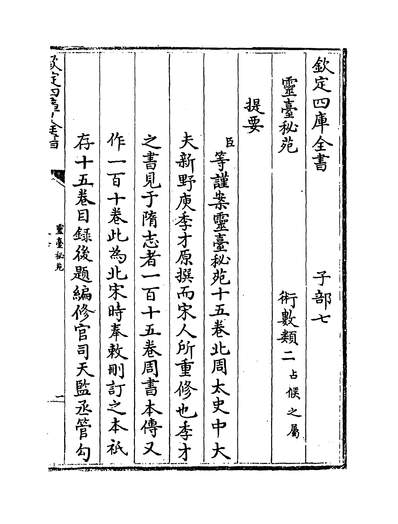 欽定四庫全書　子部七
靈臺秘苑　術數類二占候之屬
提要
臣等謹案靈臺秘苑十五卷北周太史中大
夫新野庾季才原撰而宋人所重修也季才
之書見于隋志者一百十五卷周書本傳又
作一百十卷此為北宋時奉敕刪訂之本祇
存十五卷目録後題編修官司天監丞管勾
欽定四庫全書
靈臺秘苑
一